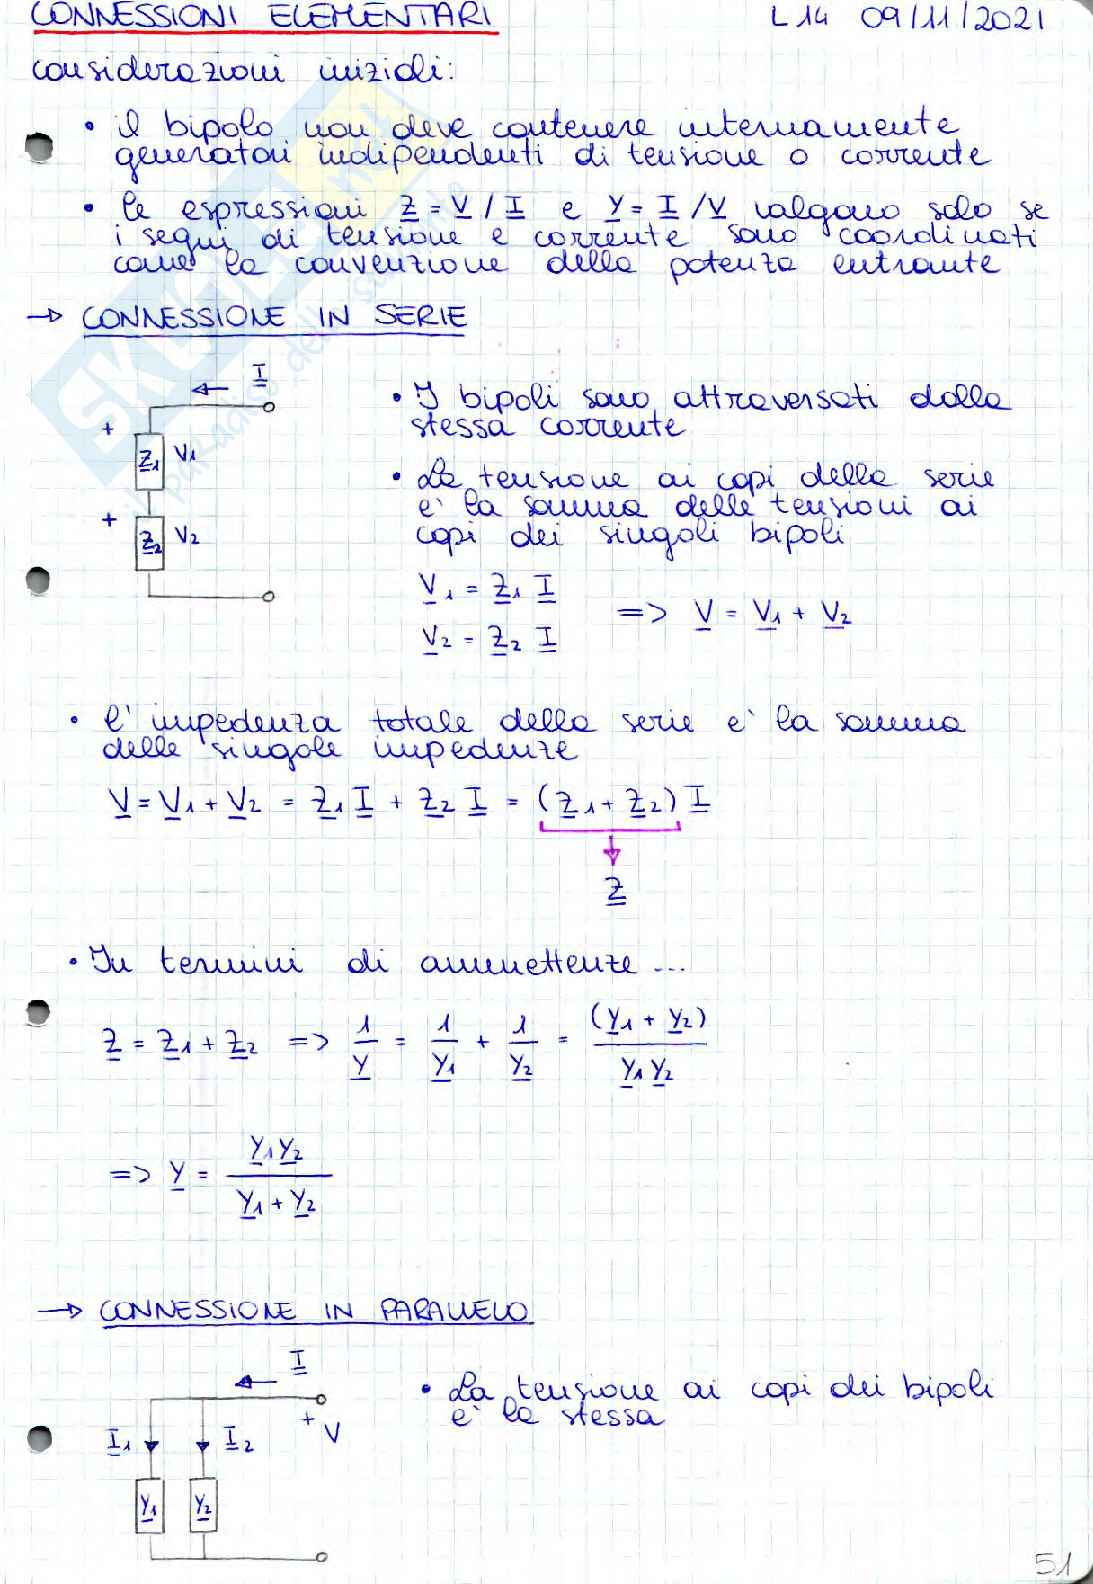 CONNESSIONI ELEMENTARI L14 09/11/2021
considerazioni iniziali:
• il bipolo non deve contenere internamente
generatori indipendenti di tensione o corrente
• le espressioni Z = V / I e Y = I / V valgono solo se
i segni di tensione e corrente sono coordinati
come la convenzione della potenza entrante
→ CONNESSIONE IN SERIE
I
• I bipoli sono attraversati dalla
stessa corrente
+ Z1 V1
• La tensione ai capi della serie
è la somma delle tensioni ai
capi dei singoli bipoli
+ Z2 V2
V1 = Z1 I
V2 = Z2 I => V = V1 + V2
• l'impedenza totale della serie è la somma
delle singole impedenze
V = V1 + V2 = Z1 I + Z2 I = (Z1 + Z2) I
Z
• In termini di ammettenze ...
Z = Z1 + Z2 => 1/Y = 1/Y1 + 1/Y2 = (Y1 + Y2)/Y1 Y2
=> Y = Y1 Y2/Y1 + Y2
→ CONNESSIONE IN PARALLELO
I
• La tensione ai capi dei bipoli
è la stessa
+ V
I1 I2
Y1 Y2
51